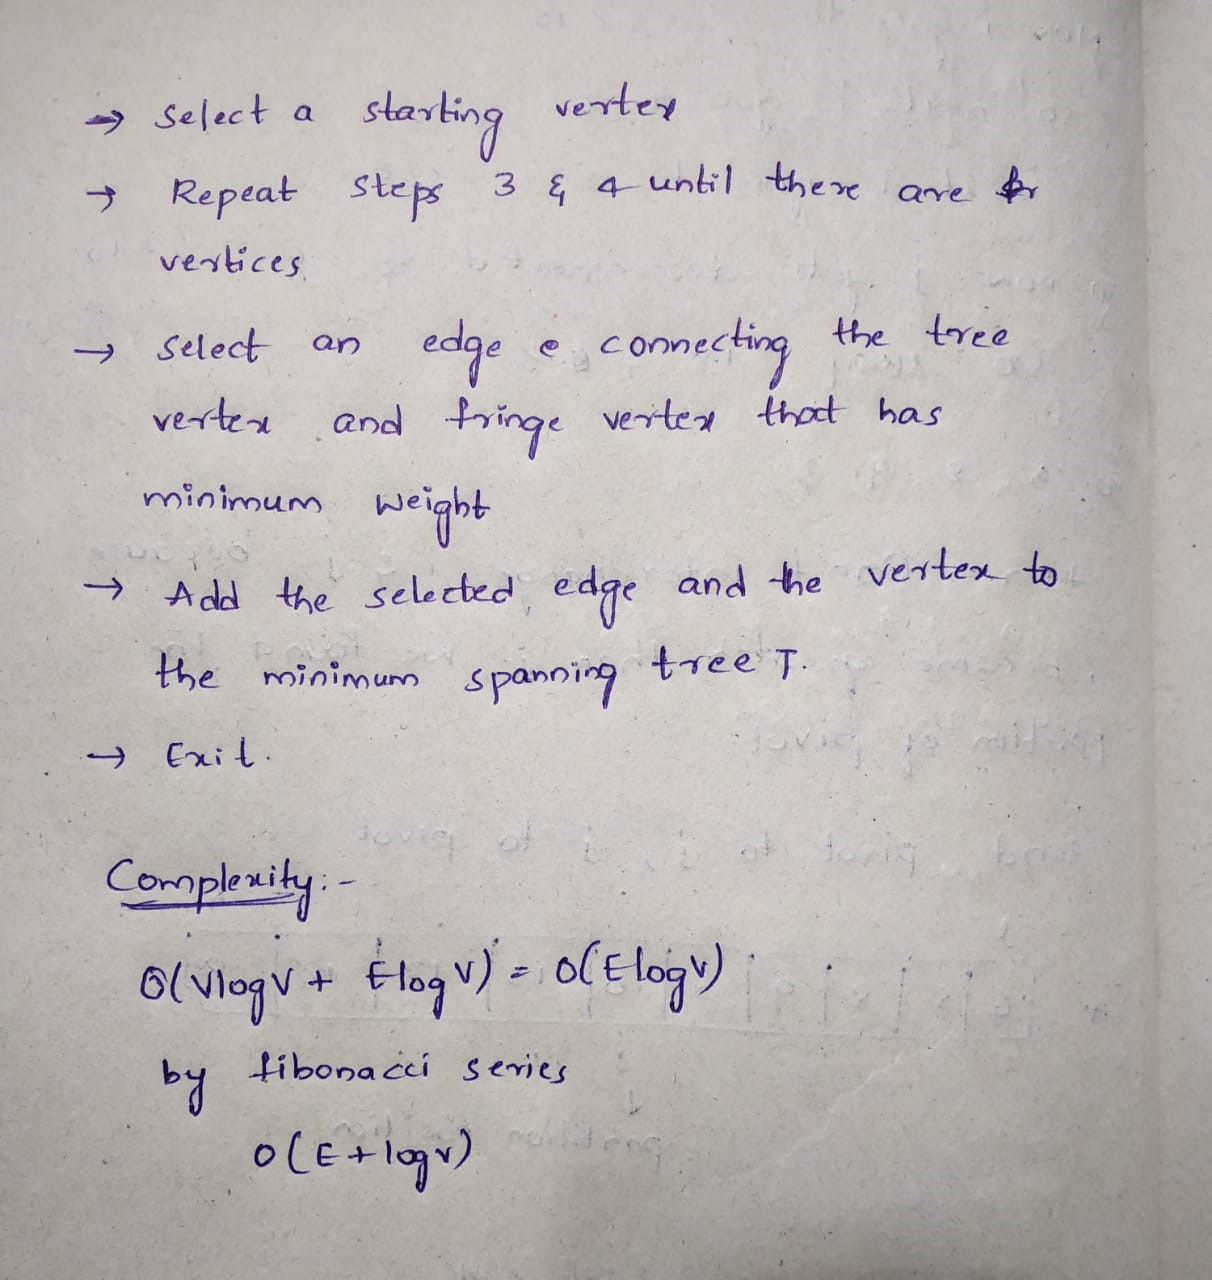 → Select a starting vertex
→ Repeat steps 3 & 4 until there are fr
vertices.
→ Select an edge e connecting the tree
vertex and fringe vertex that has
minimum weight
→ Add the selected edge and the vertex to
the minimum spanning tree T.
→ Exit.
Complexity:-
O(VlogV + ElogV) = O(ElogV)
by fibonacci series
O(E+logv)